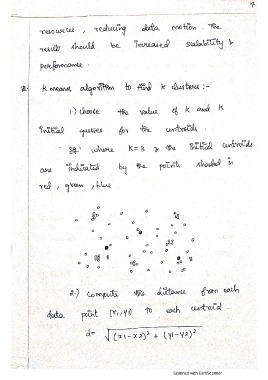 resources, reducing data motion. The
result should be increased scalability &
performance.
K means algorithm to find k clusters :-
1.) choose the value of k and k
initial guesses for the centroids.
where K = 3 & the initial centroids
are indicated by the points shaded in
red, green, blue
2.) compute the distance from each
data point (xi, yi) to each centroid.
d= √(x1-x2)² + (y1-y2)²
Scanned with CamScanner